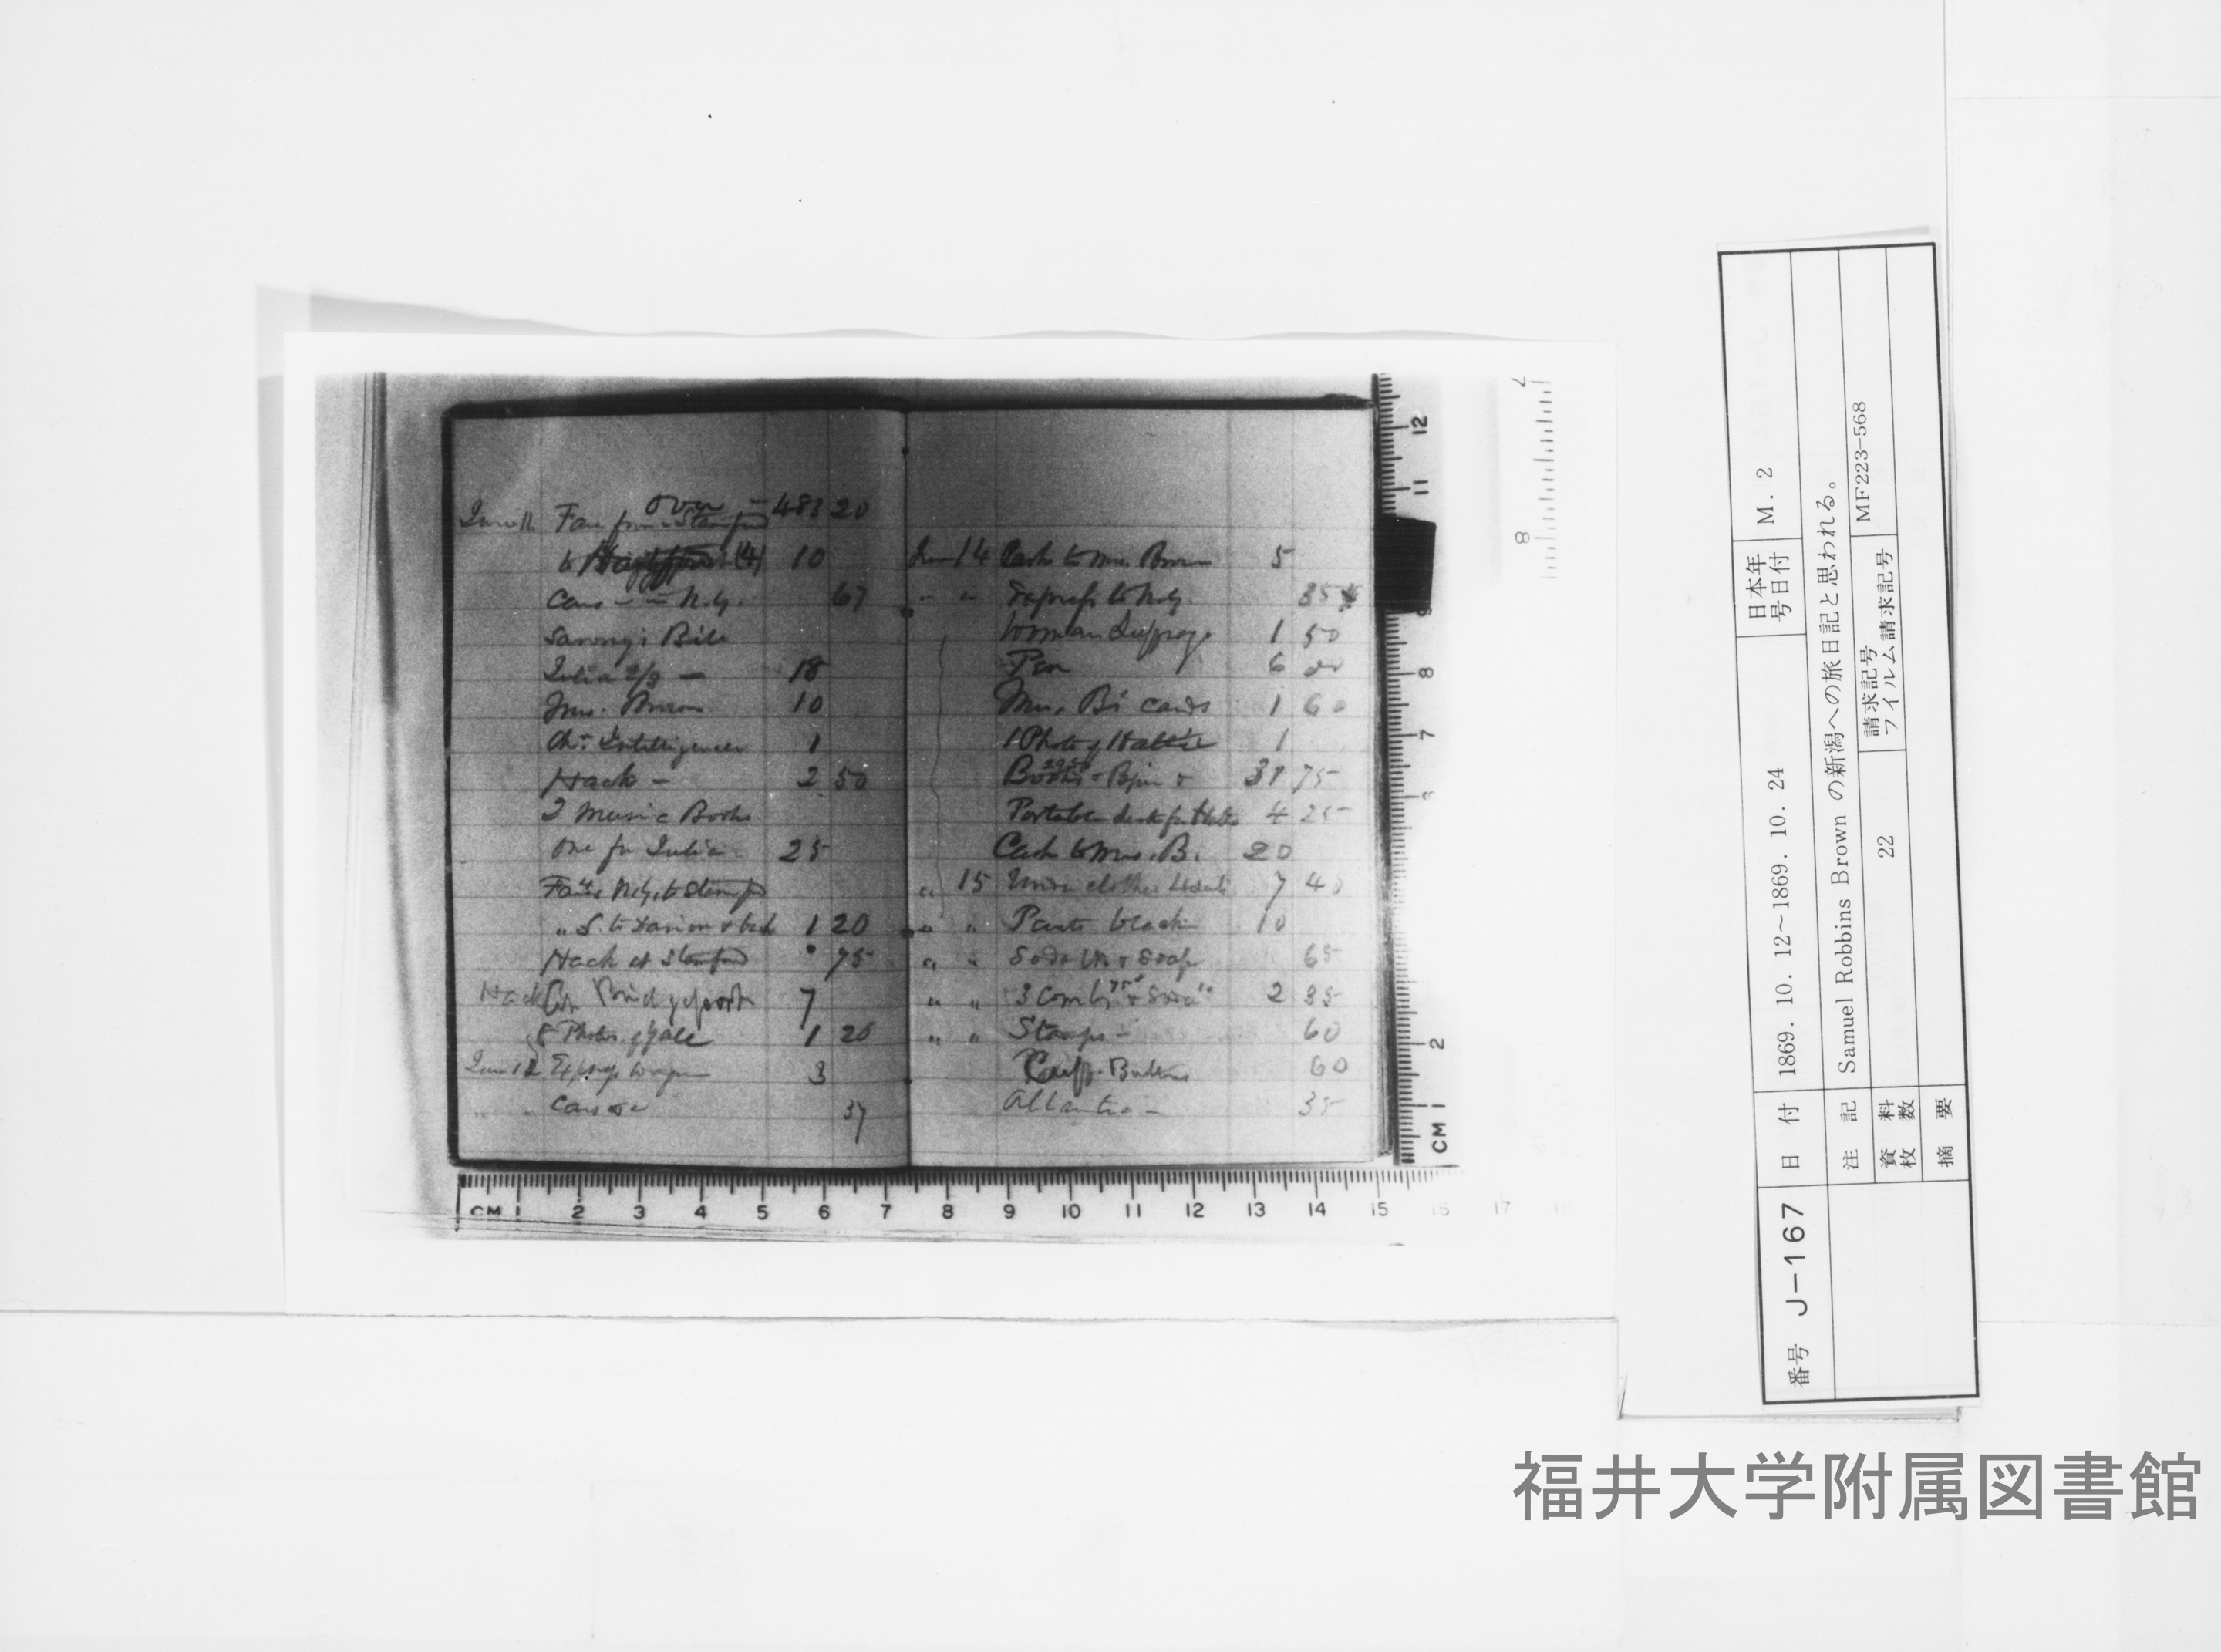 over = 483 20
June 11 Fare from Stamford
to (4) 10
Cars - = N.Y. 67
Sarony's Bill
Julia 2/9 — 18
Mrs. Brown 10
Chn. Intelligencer 1
Hack — 2 50
2 Music Books
one for Julia 25
Fares N.Y. to Stamford
„ S. to Darien & back 1 20
Hack at Stamford 75
Hack Bridgeport 7
8 Photos. of Yale 1 20
June 12 Express wagon 3
„ „ Cars &c 37
June 14 Cash to Mrs. Brown 5
„ „ Express to N.Y. 35
Woman Suffrage 1 50
Pen 6 00
Mrs. B's cards 1 60
1 Photo of Hattie 1
Books & 31 75
Portable desk for Hattie 4 25
Cash to Mrs. B. 20
„ 15 Under clothes 7 40
„ „ Pants black 10
„ „ Soda & Soap 65
„ „ 3 Combs & Soda 2 35
„ „ Stamps — 60
Cuff Buttons 60
Atlantic — 35
CM 1 2 3 4 5 6 7 8 9 10 11 12 13 14 15 16 17 18
番号 J-167
日付 1869. 10. 12~1869. 10. 24
日本年号日付 M. 2
注記 Samuel Robbins Brown の新潟への旅日記と思われる。
資料枚数 22
請求記号
フイルム請求記号 MF223-568
摘要
福井大学附属図書館